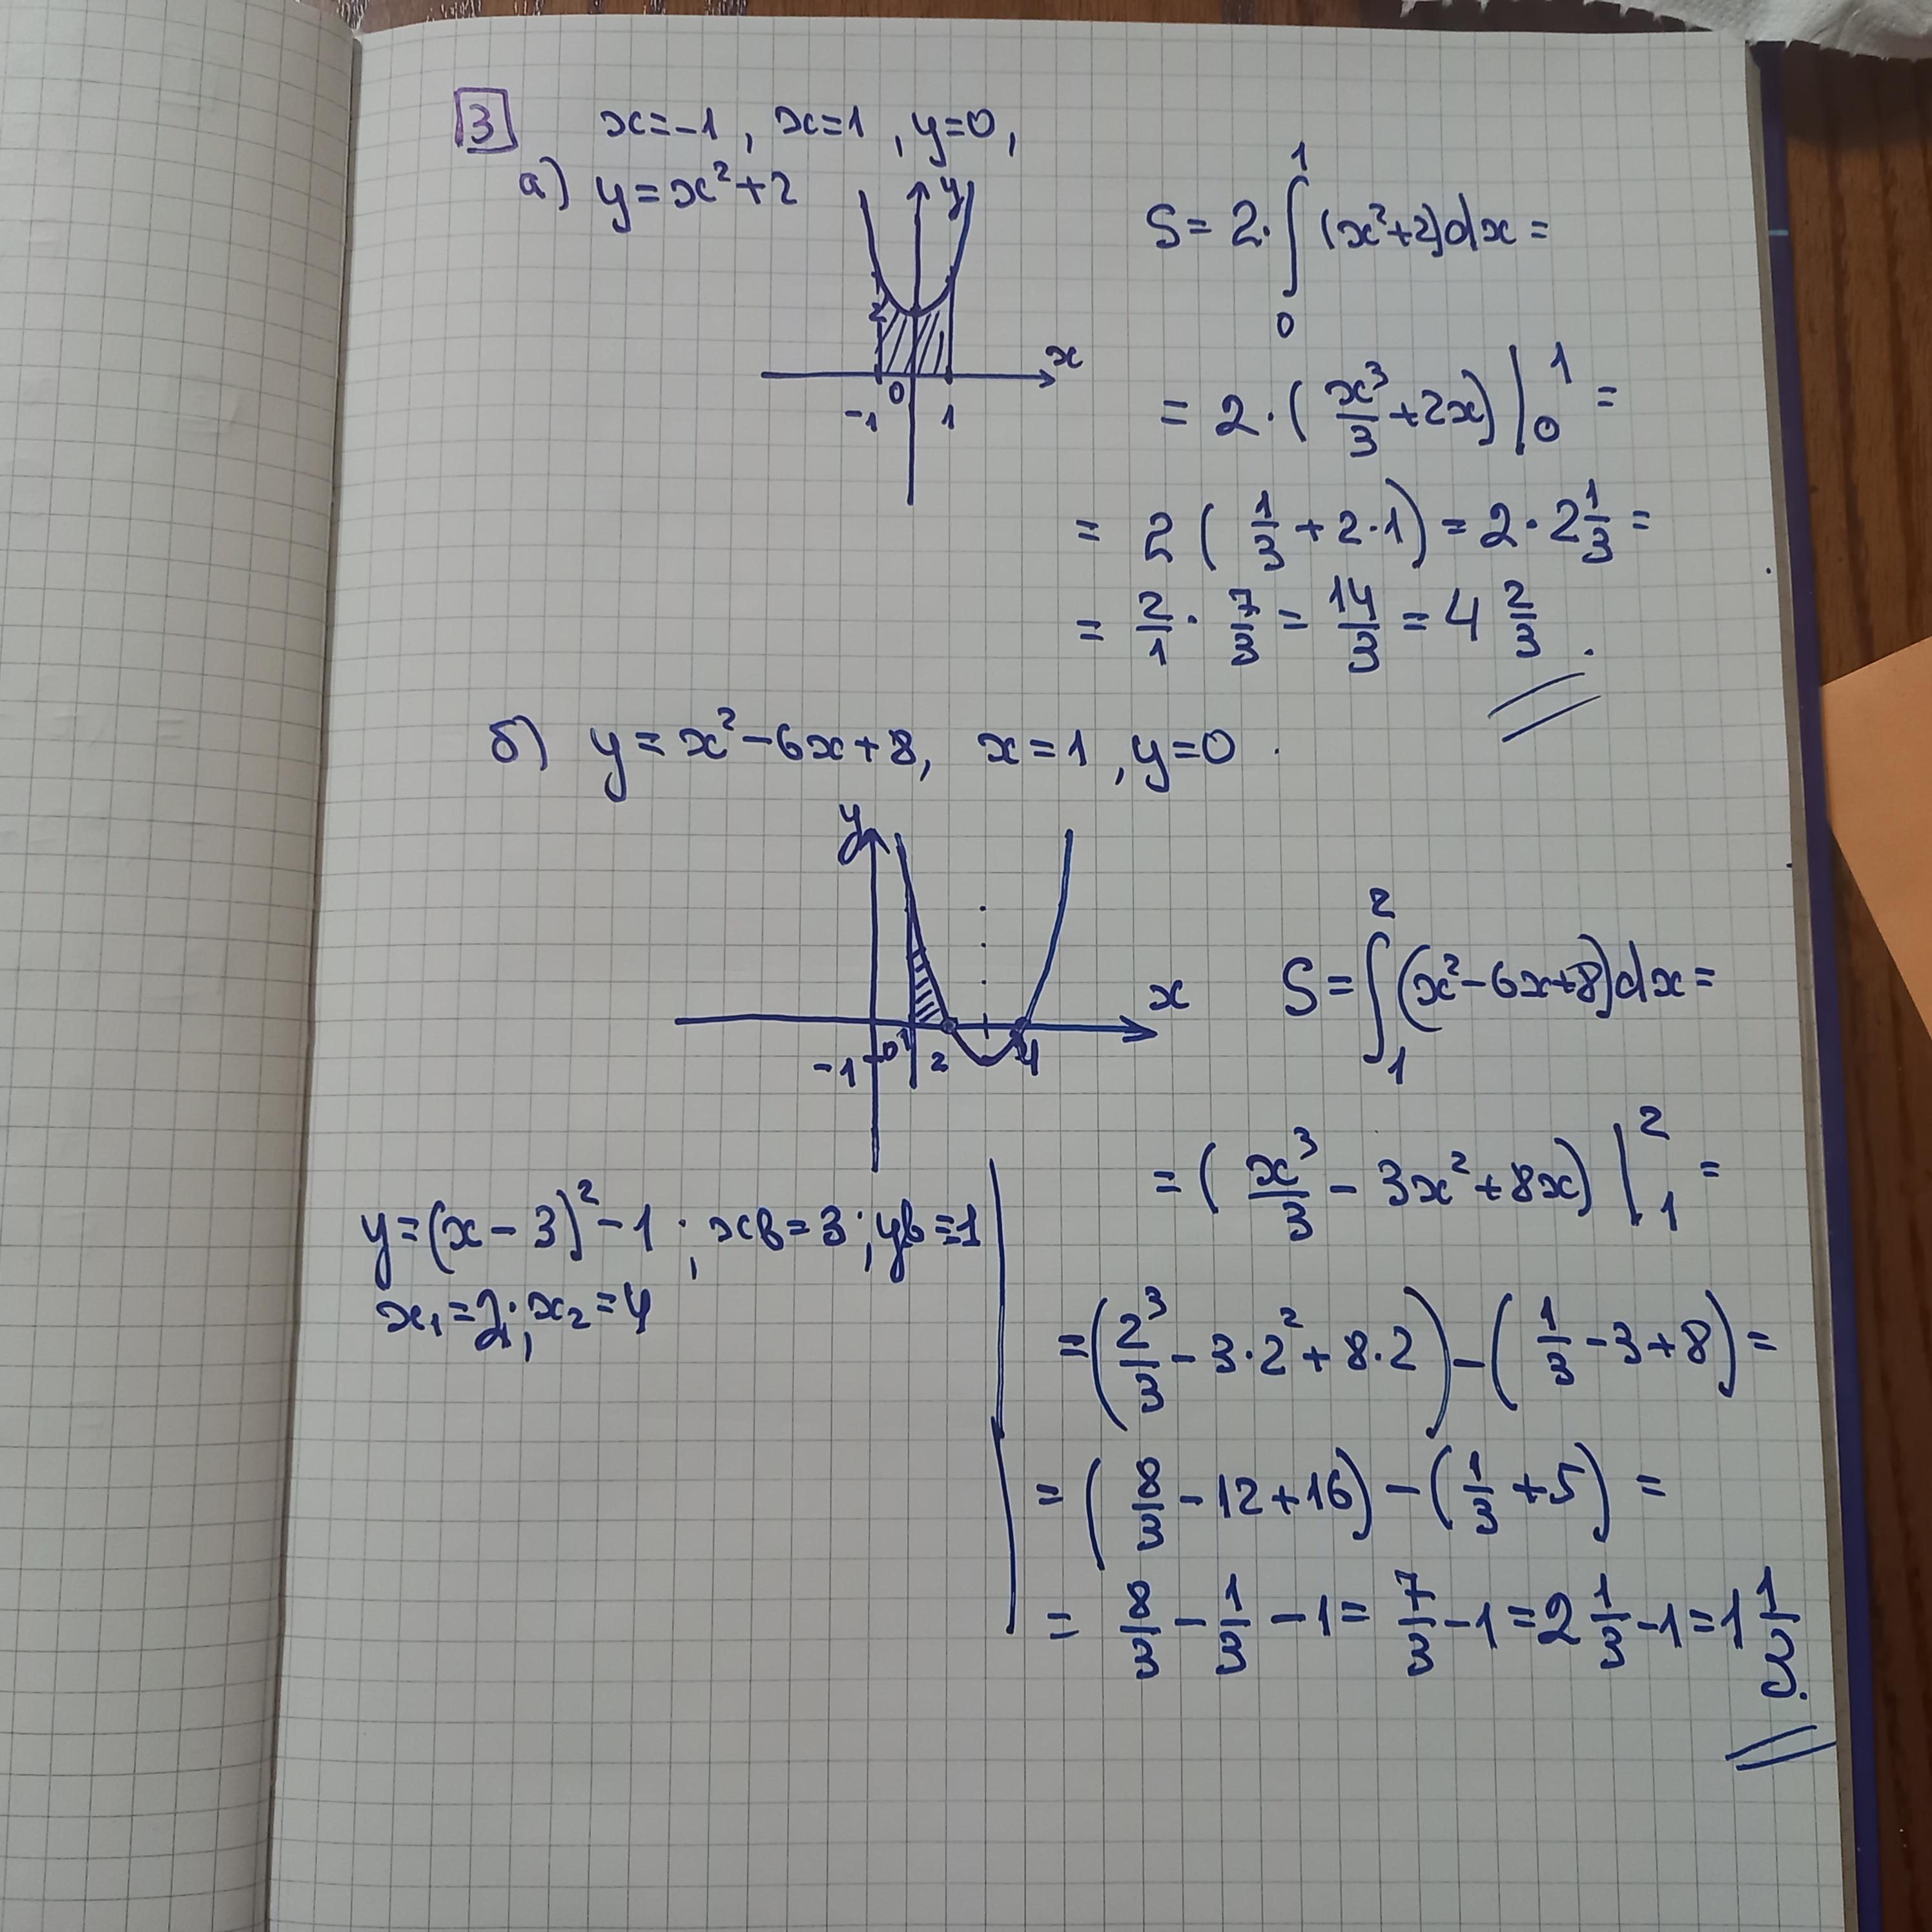 3 x=-1, x=1, y=0,
а) y=x²+2
y
2
x
-1 0 1
S=2·∫₀¹(x²+2)dx=
=2·(x³/3+2x)|₀¹=
=2(1/3+2·1)=2·2 1/3=
=2/1·7/3=14/3=4 2/3.
б) y=x²-6x+8, x=1, y=0.
y
x
-1 0 1 2 4
S=∫₁²(x²-6x+8)dx=
=(x³/3-3x²+8x)|₁²=
=(2³/3-3·2²+8·2)-(1/3-3+8)=
=(8/3-12+16)-(1/3+5)=
=8/3-1/3-1=7/3-1=2 1/3-1=1 1/3.
y=(x-3)²-1; xв=3; yв=-1
x₁=2; x₂=4